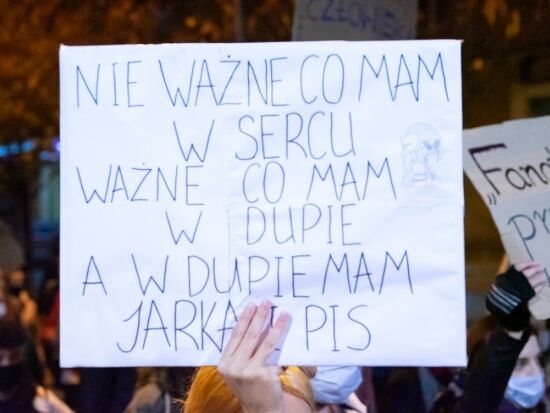 CZŁOWIEK
NIE WAŻNE CO MAM
W SERCU
WAŻNE CO MAM
W DUPIE
A W DUPIE MAM
JARKA I PIS
"Fana
pr